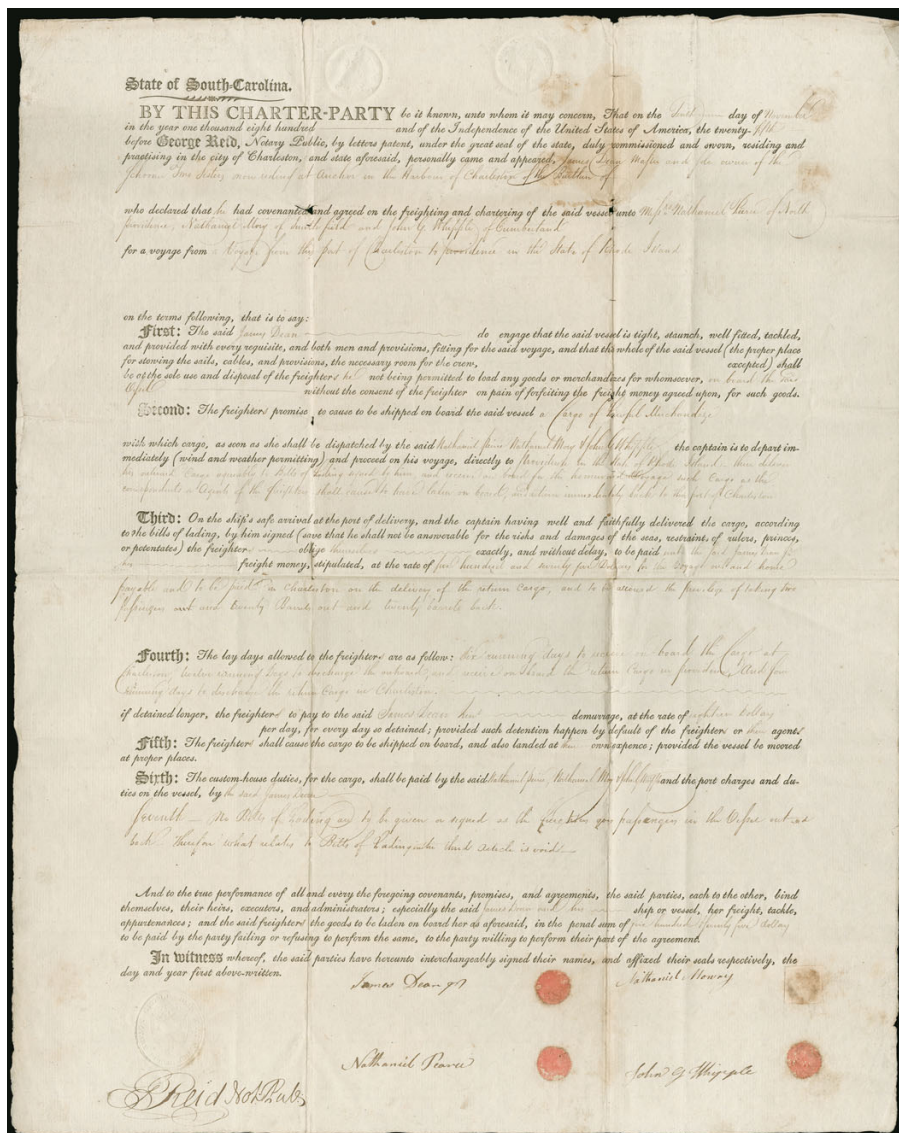 State of South-Carolina.
BY THIS CHARTER-PARTY be it known, unto whom it may concern, That on the day of November
in the year one thousand eight hundred and of the Independence of the United States of America, the twenty-fifth
before George Reid, Notary Public, by letters patent, under the great seal of the state, duly commissioned and sworn, residing and
practising in the city of Charleston, and state aforesaid, personally came and appeared, James Dean Master and owner of the
Two Sisters now riding at Anchor in the Harbour of Charleston of the Burthen of
who declared that he had covenanted and agreed on the freighting and chartering of the said vessel unto Nathaniel of North
providence, Nathaniel of Smithfield and John G Whipple of Cumberland
for a voyage from Voyage from the port of Charleston to providence in the State of Rhode Island
on the terms following, that is to say:
First: The said James Dean do engage that the said vessel is tight, staunch, well fitted, tackled,
and provided with every requisite, and both men and provisions, fitting for the said voyage, and that the whole of the said vessel (the proper place
for stowing the sails, cables, and provisions, the necessary room for the crew, excepted) shall
be at the sole use and disposal of the freighters he not being permitted to load any goods or merchandizes for whomsoever, on board the said
Vessel without the consent of the freighter on pain of forfeiting the freight money agreed upon, for such goods.
Second: The freighters promise to cause to be shipped on board the said vessel a Cargo of Lawful Merchandize
with which cargo, as soon as she shall be dispatched by the said Nathaniel Nathaniel & John G Whipple the captain is to depart im-
mediately (wind and weather permitting) and proceed on his voyage, directly to Providence in the State of Rhode Island, there deliver
his outward Cargo Bills of Lading signed by him and receive on board for the homeward Voyage such Cargo as the
correspondents or Agents of the freighters shall to have laden on board, and return immediately back to the port of Charleston
Third: On the ship's safe arrival at the port of delivery, and the captain having well and faithfully delivered the cargo, according
to the bills of lading, by him signed (save that he shall not be answerable for the risks and damages of the seas, restraint, of rulers, princes,
or potentates) the freighters oblige themselves exactly, and without delay, to be paid unto the said James Dean
his freight money, stipulated, at the rate of five hundred and seventy five Dollars for the Voyage out and home
payable and to be paid in Charleston on the delivery of the return Cargo, and to be allowed the privilege of taking two
passengers out and twenty Barrels out and twenty barrels back.
Fourth: The lay days allowed to the freighters are as follow: running days to receive on board the Cargo at
Charleston, twelve running days to discharge the outward, and receive on board the return Cargo in providence, And four
running days to discharge the return Cargo in Charleston
if detained longer, the freighters to pay to the said James Dean demurrage, at the rate of eighteen dollars
per day, for every day so detained; provided such detention happen by default of the freighters or their agents
Fifth: The freighters shall cause the cargo to be shipped on board, and also landed at their own expence; provided the vessel be moored
at proper places.
Sixth: The custom-house duties, for the cargo, shall be paid by the said Nathaniel Nathaniel & John G Whipple and the port charges and du-
ties on the vessel, by the said James Dean
Seventh - No Bills of Lading are to be given or signed as the freighters go passengers in the Vessel out and
back. Therefore what relates to Bills of Lading in the third article is void.
And to the true performance of all and every the foregoing covenants, promises, and agreements, the said parties, each to the other, bind
themselves, their heirs, executors, and administrators; especially the said James Dean and his ship or vessel, her freight, tackle,
appurtenances; and the said freighters the goods to be laden on board her as aforesaid, in the penal sum of five hundred & seventy five dollars
to be paid by the party failing or refusing to perform the same, to the party willing to perform their part of the agreement.
In witness whereof, the said parties have hereunto interchangeably signed their names, and affixed their seals respectively, the
day and year first above-written.
James Dean jr
Nathaniel Mowry
Nathaniel Pearce
John G Whipple
G Reid Not Pub